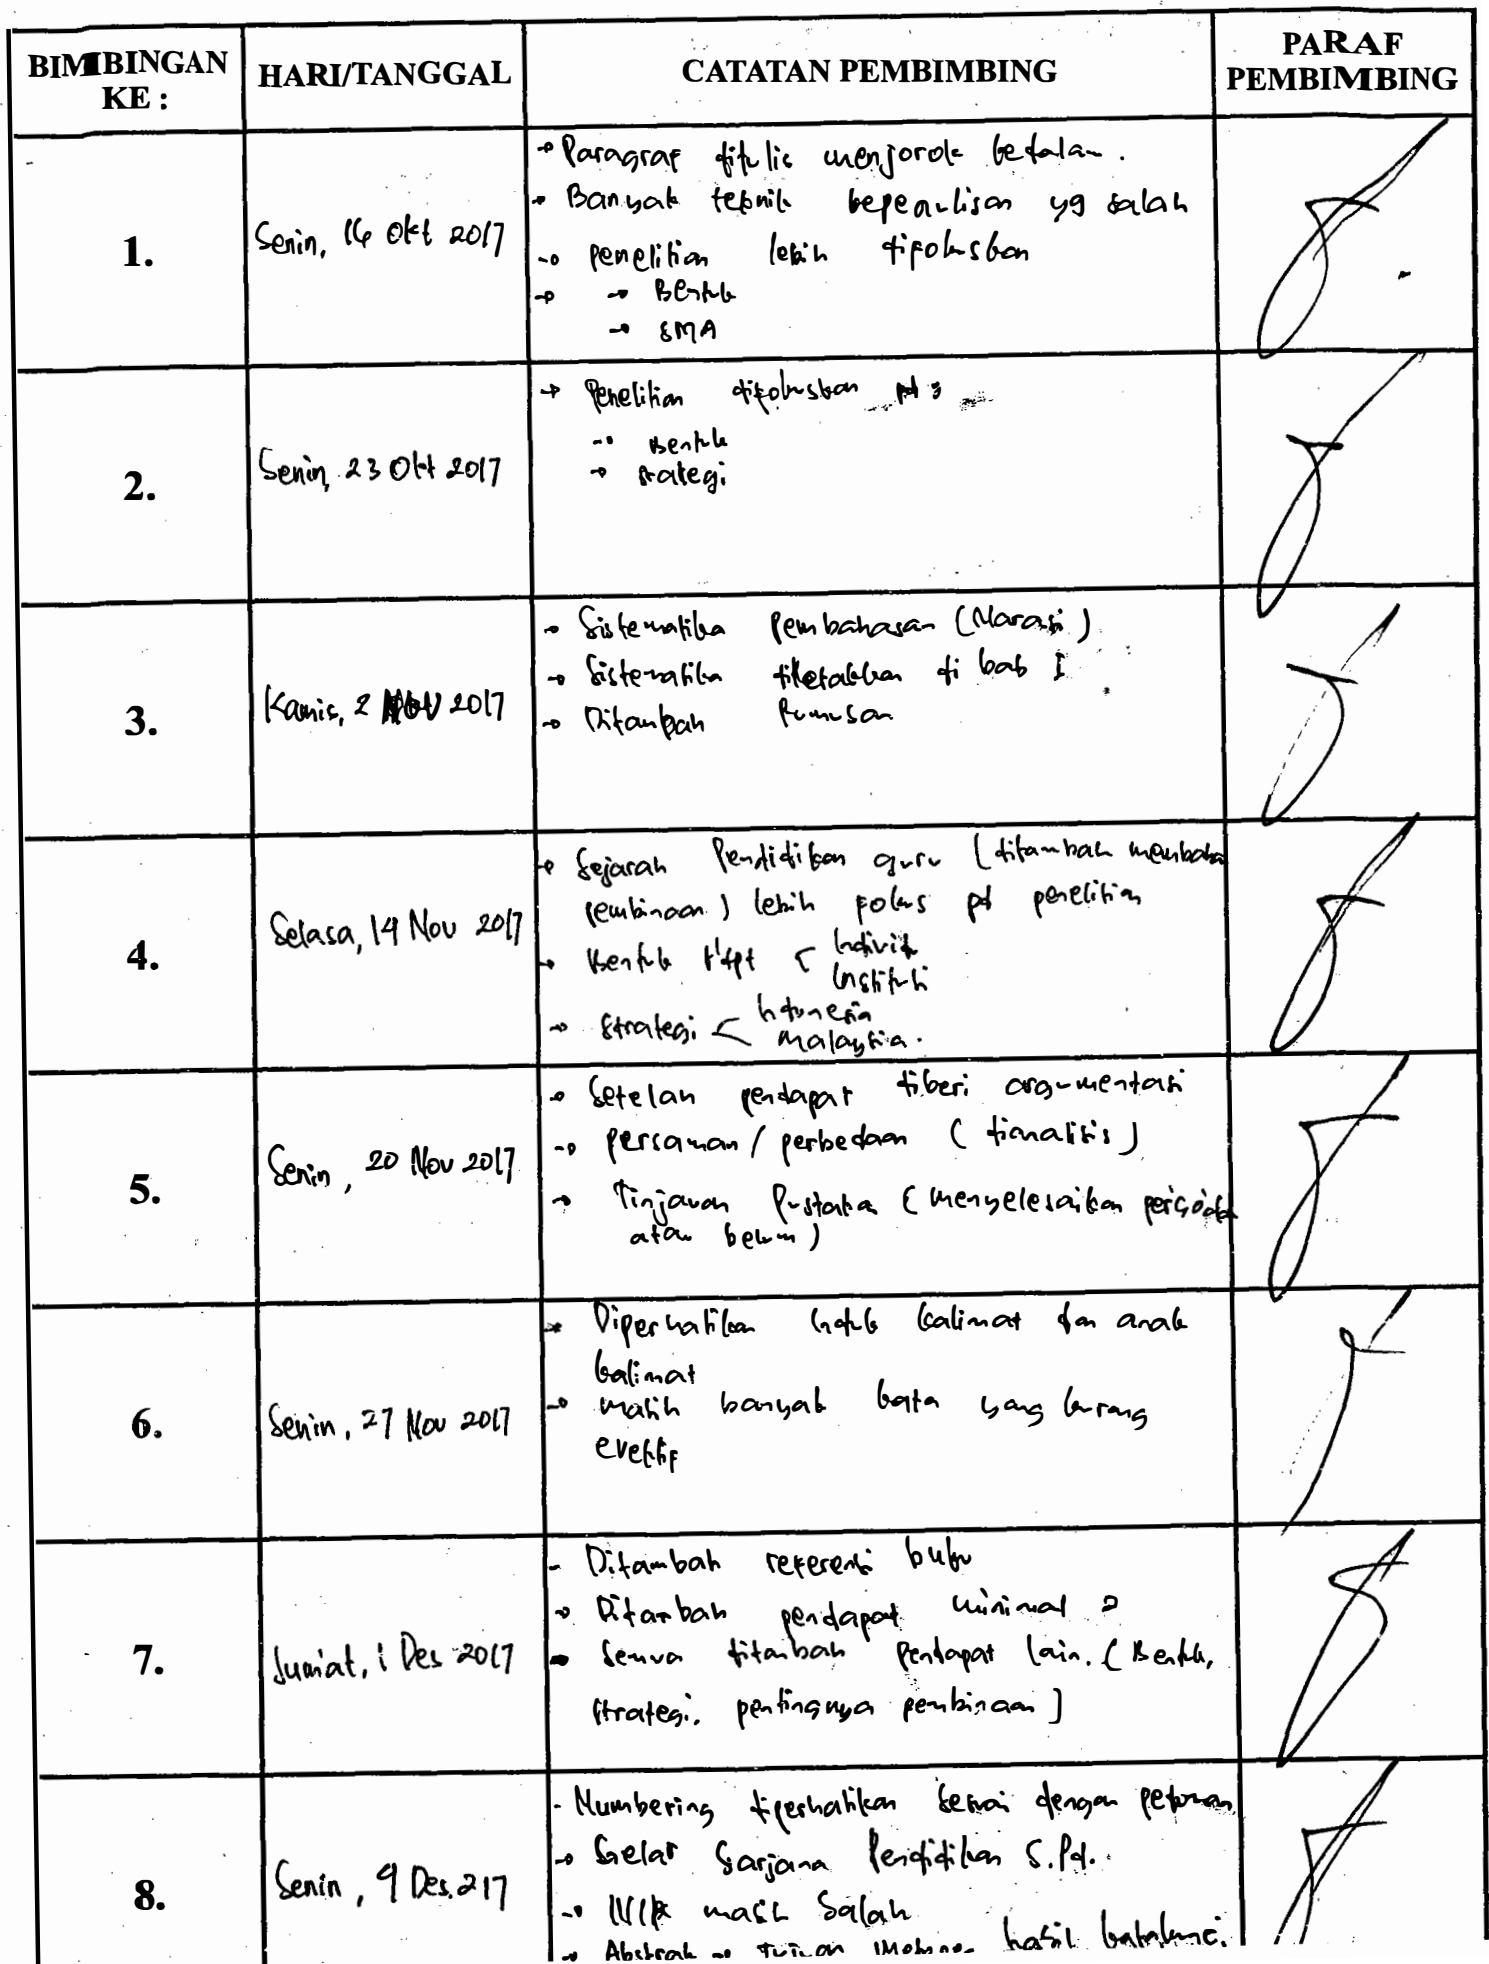 BIMBINGAN KE :
HARI/TANGGAL
CATATAN PEMBIMBING
PARAF PEMBIMBING
1.
Senin, 16 Okt 2017
→ Paragraf ditulis menjorok kedalam.
→ Banyak teknik kepenulisan yg salah
→ Penelitian lebih difokuskan
→ → Bentuk
→ SMA
2.
Senin, 23 Okt 2017
→ Penelitian difokuskan pd :
→ Bentuk
→ Strategi
3.
Kamis, 2 Nov 2017
→ Sistematika Pembahasan (Narasi)
→ Sistematika diletakkan di bab I
→ Ditambah Rumusan
4.
Selasa, 14 Nov 2017
→ Sejarah Pendidikan guru (ditambah membahas
pembinaan) lebih fokus pd penelitian
→ Bentuk < Individu
Institusi
→ Strategi < Indonesia
Malaysia.
5.
Senin, 20 Nov 2017
→ Setelah pendapat diberi argumentasi
→ Persamaan / perbedaan (dianalisis)
→ Tinjauan Pustaka (menyelesaikan
atau belum)
6.
Senin, 27 Nov 2017
→ Diperhatikan induk kalimat dan anak
kalimat
→ Masih banyak kata yang kurang
evektif
7.
Jum'at, 1 Des 2017
- Ditambah referensi buku
→ Ditambah pendapat minimal 2
→ Semua ditambah pendapat lain. (Bentuk,
strategi, pentingnya pembinaan)
8.
Senin, 4 Des. 217
- Numbering diperhatikan sesuai dengan pedoman
→ Gelar Sarjana Pendidikan S.Pd.
→ NIP masih Salah
→ Abstrak → Tujuan hasil